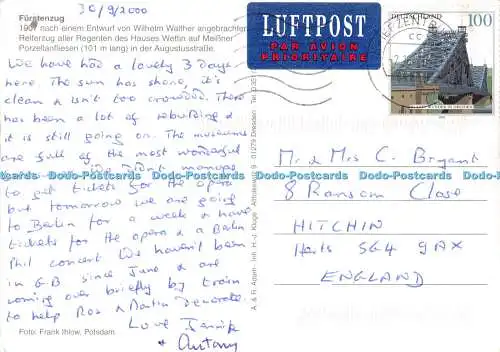 Fürstenzug
30/9/2000
1907 nach einem Entwurf von Wilhelm Walther angebrachter
Reiterzug aller Regenten des Hauses Wettin auf Meißner
Porzellanfliesen (101 m lang) in der Augustusstraße.
We have had a lovely 3 days
here. The sun has shone, it's
clean & isn't too crowded. There
has been a lot of rebuilding &
it is still going on. The museums
are full of the most wonderful
didn't manage
to get tickets for the opera
but tomorrow we are going
to Berlin for a week & have
tickets for the opera & a Berlin
Phil concert. We haven't been
in G.B since June & are
coming over briefly by train
to help Ros & Martin decorate.
Love
& Antony
Foto: Frank Ihlow, Potsdam
A. & R. Adam · Inh. H.-J. Kluge · 01279 Dresden · Tel.
LUFTPOST
PAR AVION
PRIORITAIRE
DEUTSCHLAND
100
Mr & Mrs C. Bryant
8 Ransom Close
HITCHIN
Herts SG4 9AX
ENGLAND
Dodo-Postcards Dodo-Postcards Dodo-Postcards Dodo-Postcards Dodo-Postcards